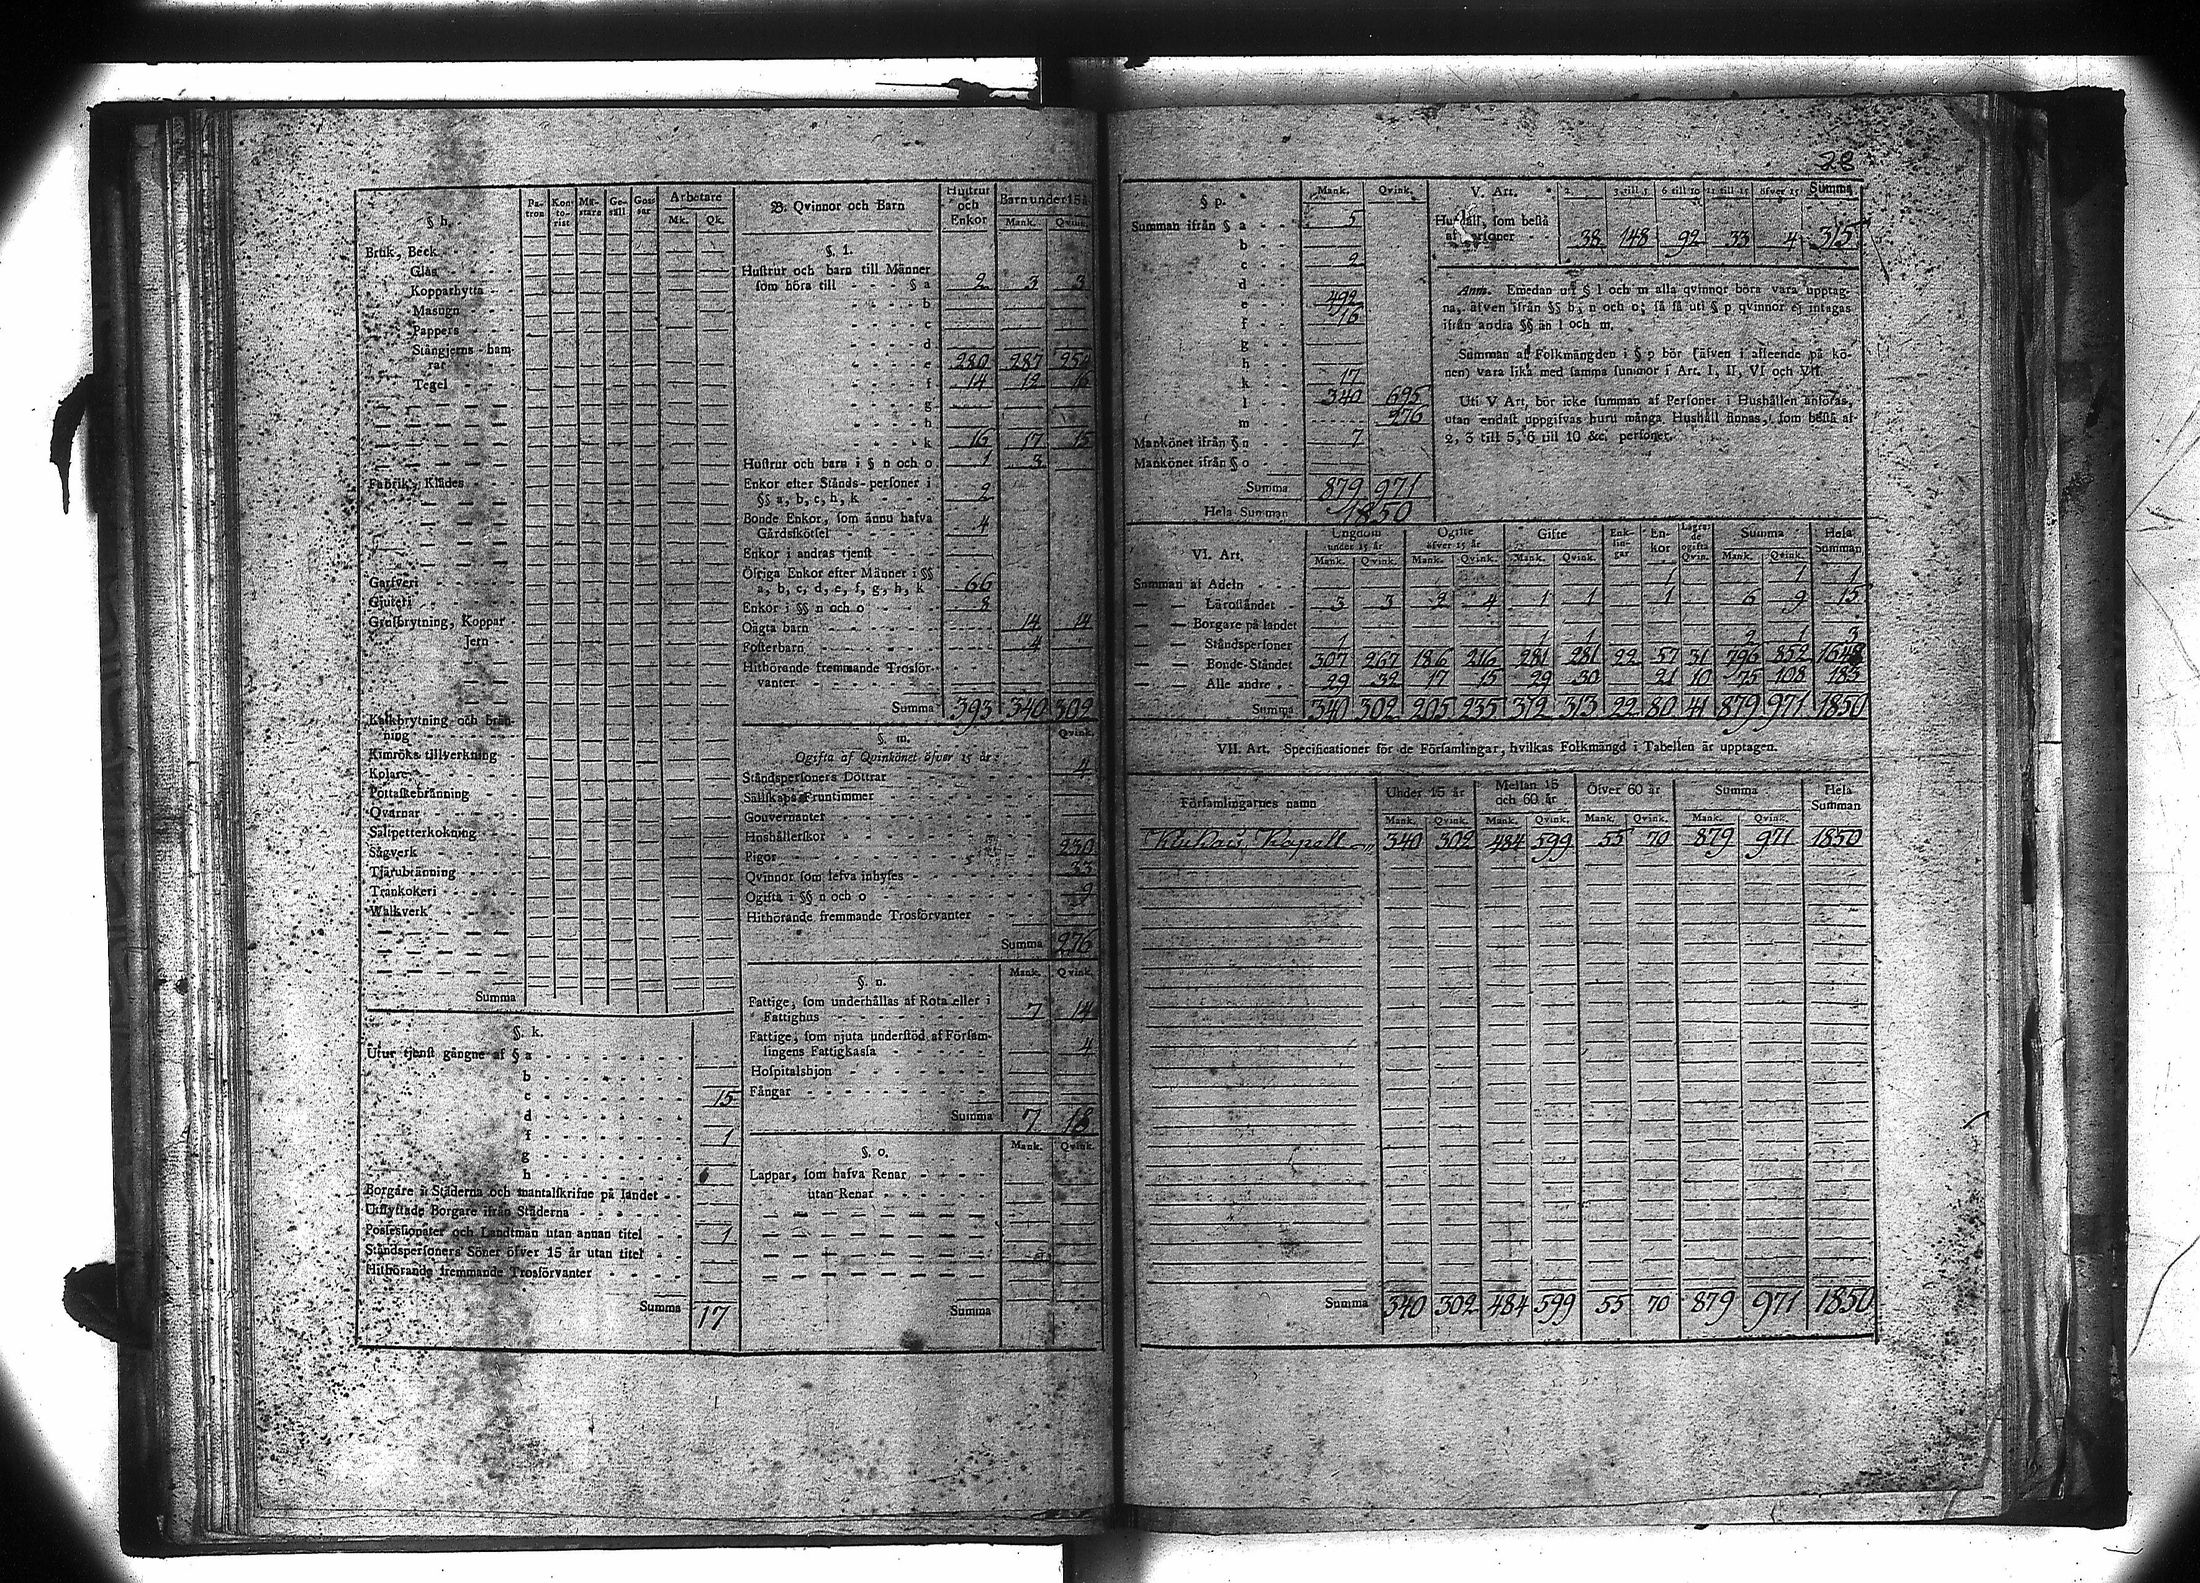 28
§ h.
Pa-tron Kon-to-rist Mä-stare Ge-säll Gos-sar Arbetare
Mk. Qk.
Bruk, Beck
Glas
Kopparhytta
Masugn
Pappers
Stångjerns-ham-
rar
Tegel
Fabrik, Klädes
Garfveri
Gjuteri
Grufbrytning, Koppar
Jern
Kalkbrytning och brän-
ning
Kimröks tillverkning
Kolare
Pottaskebränning
Qvarnar
Saltpetterkokning
Sågverk
Tjärubränning
Trankokeri
Walkverk
Summa
§. k.
Utur tjenst gångne af § a
b
c 15
d
f 1
g
h
Borgare i Städerna och mantalskrifne på landet
Utflyttade Borgare ifrån Städerna
Possessionater och Landtmän utan annan titel 1
Ståndspersoners Söner öfver 15 år utan titel
Hithörande fremmande Trosförvanter
Summa 17
B. Qvinnor och Barn
Hustrur och Enkor Barn under 15 å
Mank. Qvink.
§. l.
Hustrur och barn till Männer
som höra till § a 2 3 3
b
c
d
e 280 287 254
f 14 12 16
g
h
k 16 17 15
Hustrur och barn i § n och o 1 3
Enkor efter Stånds-personer i
§§ a, b, c, h, k 2
Bonde Enkor, som ännu hafva
Gårdskötsel 4
Enkor i andras tjenst
Öfriga Enkor efter Männer i §§
a, b, c, d, e, f, g, h, k 66
Enkor i §§ n och o 8
Oägta barn 14 14
Fosterbarn 4
Hithörande fremmande Trosför-
vanter
Summa 393 340 302
§. m. Qvink.
Ogifta af Qvinkönet öfver 15 år:
Ståndspersoners Döttrar 4
Sällskaps Fruntimmer
Gouvernanter
Hushållerskor
Pigor 230
Qvinnor som lefva inhyses 33
Ogifta i §§ n och o 9
Hithörande fremmande Trosförvanter
Summa 276
§. n. Mank. Qvink.
Fattige, som underhållas af Rota eller i
Fattighus 7 14
Fattige, som njuta understöd af Försam-
lingens Fattigkassa 4
Hospitalshjon
Fångar
Summa 7 18
§. o. Mank. Qvink.
Lappar, som hafva Renar
utan Renar
Summa
§ p. Mank. Qvink.
Summan ifrån § a 5
b
c 2
d
e 492
f 16
g
h
k 17
l 340 695
m 276
Mankönet ifrån § n 7
Mankönet ifrån § o
Summa 879 971
Hela Summan 1850
V. Art. 2. 3 till 5 6 till 10 11 till 15 öfver 15 Summa
Hushåll, som bestå
af personer 38 148 92 33 4 315
Anm. Emedan uti § l och m alla qvinnor böra vara upptag-
na, äfven ifrån §§ b, n och o; så få uti § p qvinnor ej intagas
ifrån andra §§ än l och m.
Summan af Folkmängden i § p bör (äfven i afseende på kö-
nen) vara lika med samma summor i Art. I, II, VI och VII.
Uti V Art. bör icke summan af Personer i Hushållen anföras,
utan endast uppgifvas huru många Hushåll finnas, som bestå af
2, 3 till 5, 6 till 10 &c. personer.
VI. Art. Ungdom under 15 år Ogifte öfver 15 år Gifte Enk-lin-gar En-kor Lägrade ogifta Qvin. Summa Hela Summan
Mank. Qvink. Mank. Qvink. Mank. Qvink. Mank. Qvink.
Summan af Adeln 1 1 1
— — Läroståndet 3 3 2 4 1 1 1 6 9 15
— — Borgare på landet
— — Ståndspersoner 1 1 1 2 1 3
— — Bonde-Ståndet 307 267 186 216 281 281 22 57 31 796 852 1648
— — Alle andre 29 32 17 15 29 30 21 10 75 108 183
Summa 340 302 205 235 312 313 22 80 41 879 971 1850
VII. Art. Specificationer för de Församlingar, hvilkas Folkmängd i Tabellen är upptagen.
Församlingarnes namn Under 15 år Mellan 15 och 60 år Öfver 60 år Summa Hela Summan
Mank. Qvink. Mank. Qvink. Mank. Qvink. Mank. Qvink.
Kiukais Kapell 340 302 484 599 55 70 879 971 1850
Summa 340 302 484 599 55 70 879 971 1850